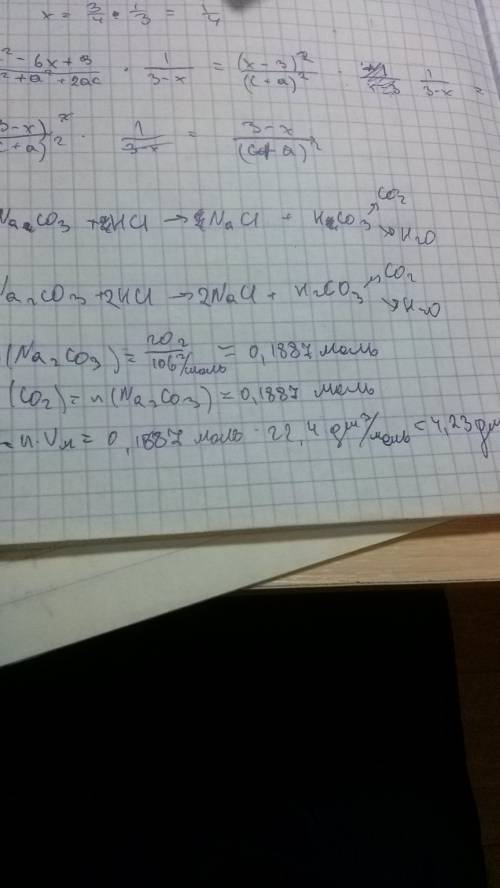 x = 3/4 • 1/3 = 1/4
² - 6x + 9 / ² + a² + 2ac · 1 / 3-x = (x - 3)² / (c+a)² · 1 / 3-x =
3-x)² / c+a)² · 1 / 3-x = 3-x / (c+a)²
Na₂CO3 + 2HCl → 2NaCl + H₂CO3 ↗CO2 ↘H2O
Na2CO3 + 2HCl → 2NaCl + H2CO3 ↗CO2 ↘H2O
(Na2CO3) = 20г / 106г/моль = 0,1887 моль
(CO2) = n(Na2CO3) = 0,1887 моль
= n·Vм = 0,1887 моль · 22,4 дм³/моль = 4,23 дм